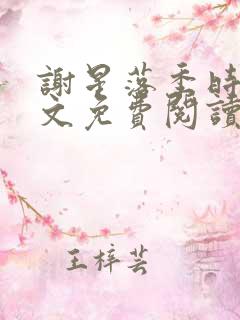 謝星落季時
文免費閱讀
王梓芸